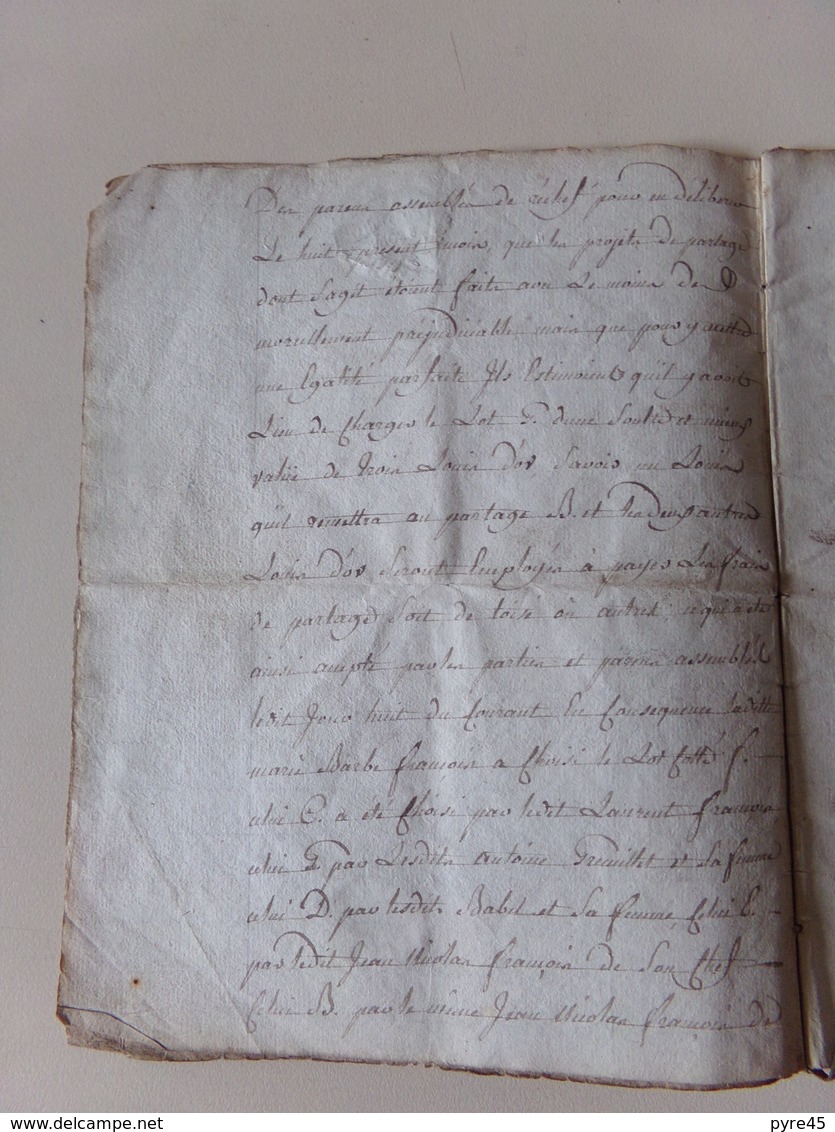 Des parens assemblés de rechef pour en déliberer
Le huit present mois, que les projets de partage
dont Sagit étoient faits avec Le moins de
morcellement prejudiciable mais que pour y mettre
une Egalité parfaite Ils Estimoient quil y avoit
Lieu de Charger le Lot G. dune Soulte et mieux
value de trois Louis d'or Savoir un Louis
quil remettra au partage B. et les deux autres
Louis d'or Seront Employés à payer Les frais
de partage Soit de toisé ou autres, ce qui a été
ainsi accepté par les parties et parens assemblés
ledit Jour huit du Courant En Consequence laditte
marie Barbe françois a Choisi le Lot Cotté f.
celui C. a été Choisi par ledit Laurent françois
celui G par Lesdits antoine et Sa femme
celui D. par lesdits Babel et Sa femme, Celui E.
par ledit Jean Nicolas françois de Son Chef
Celui B. par le même Jean Nicolas françois de
www.delcampe.net
pyre45